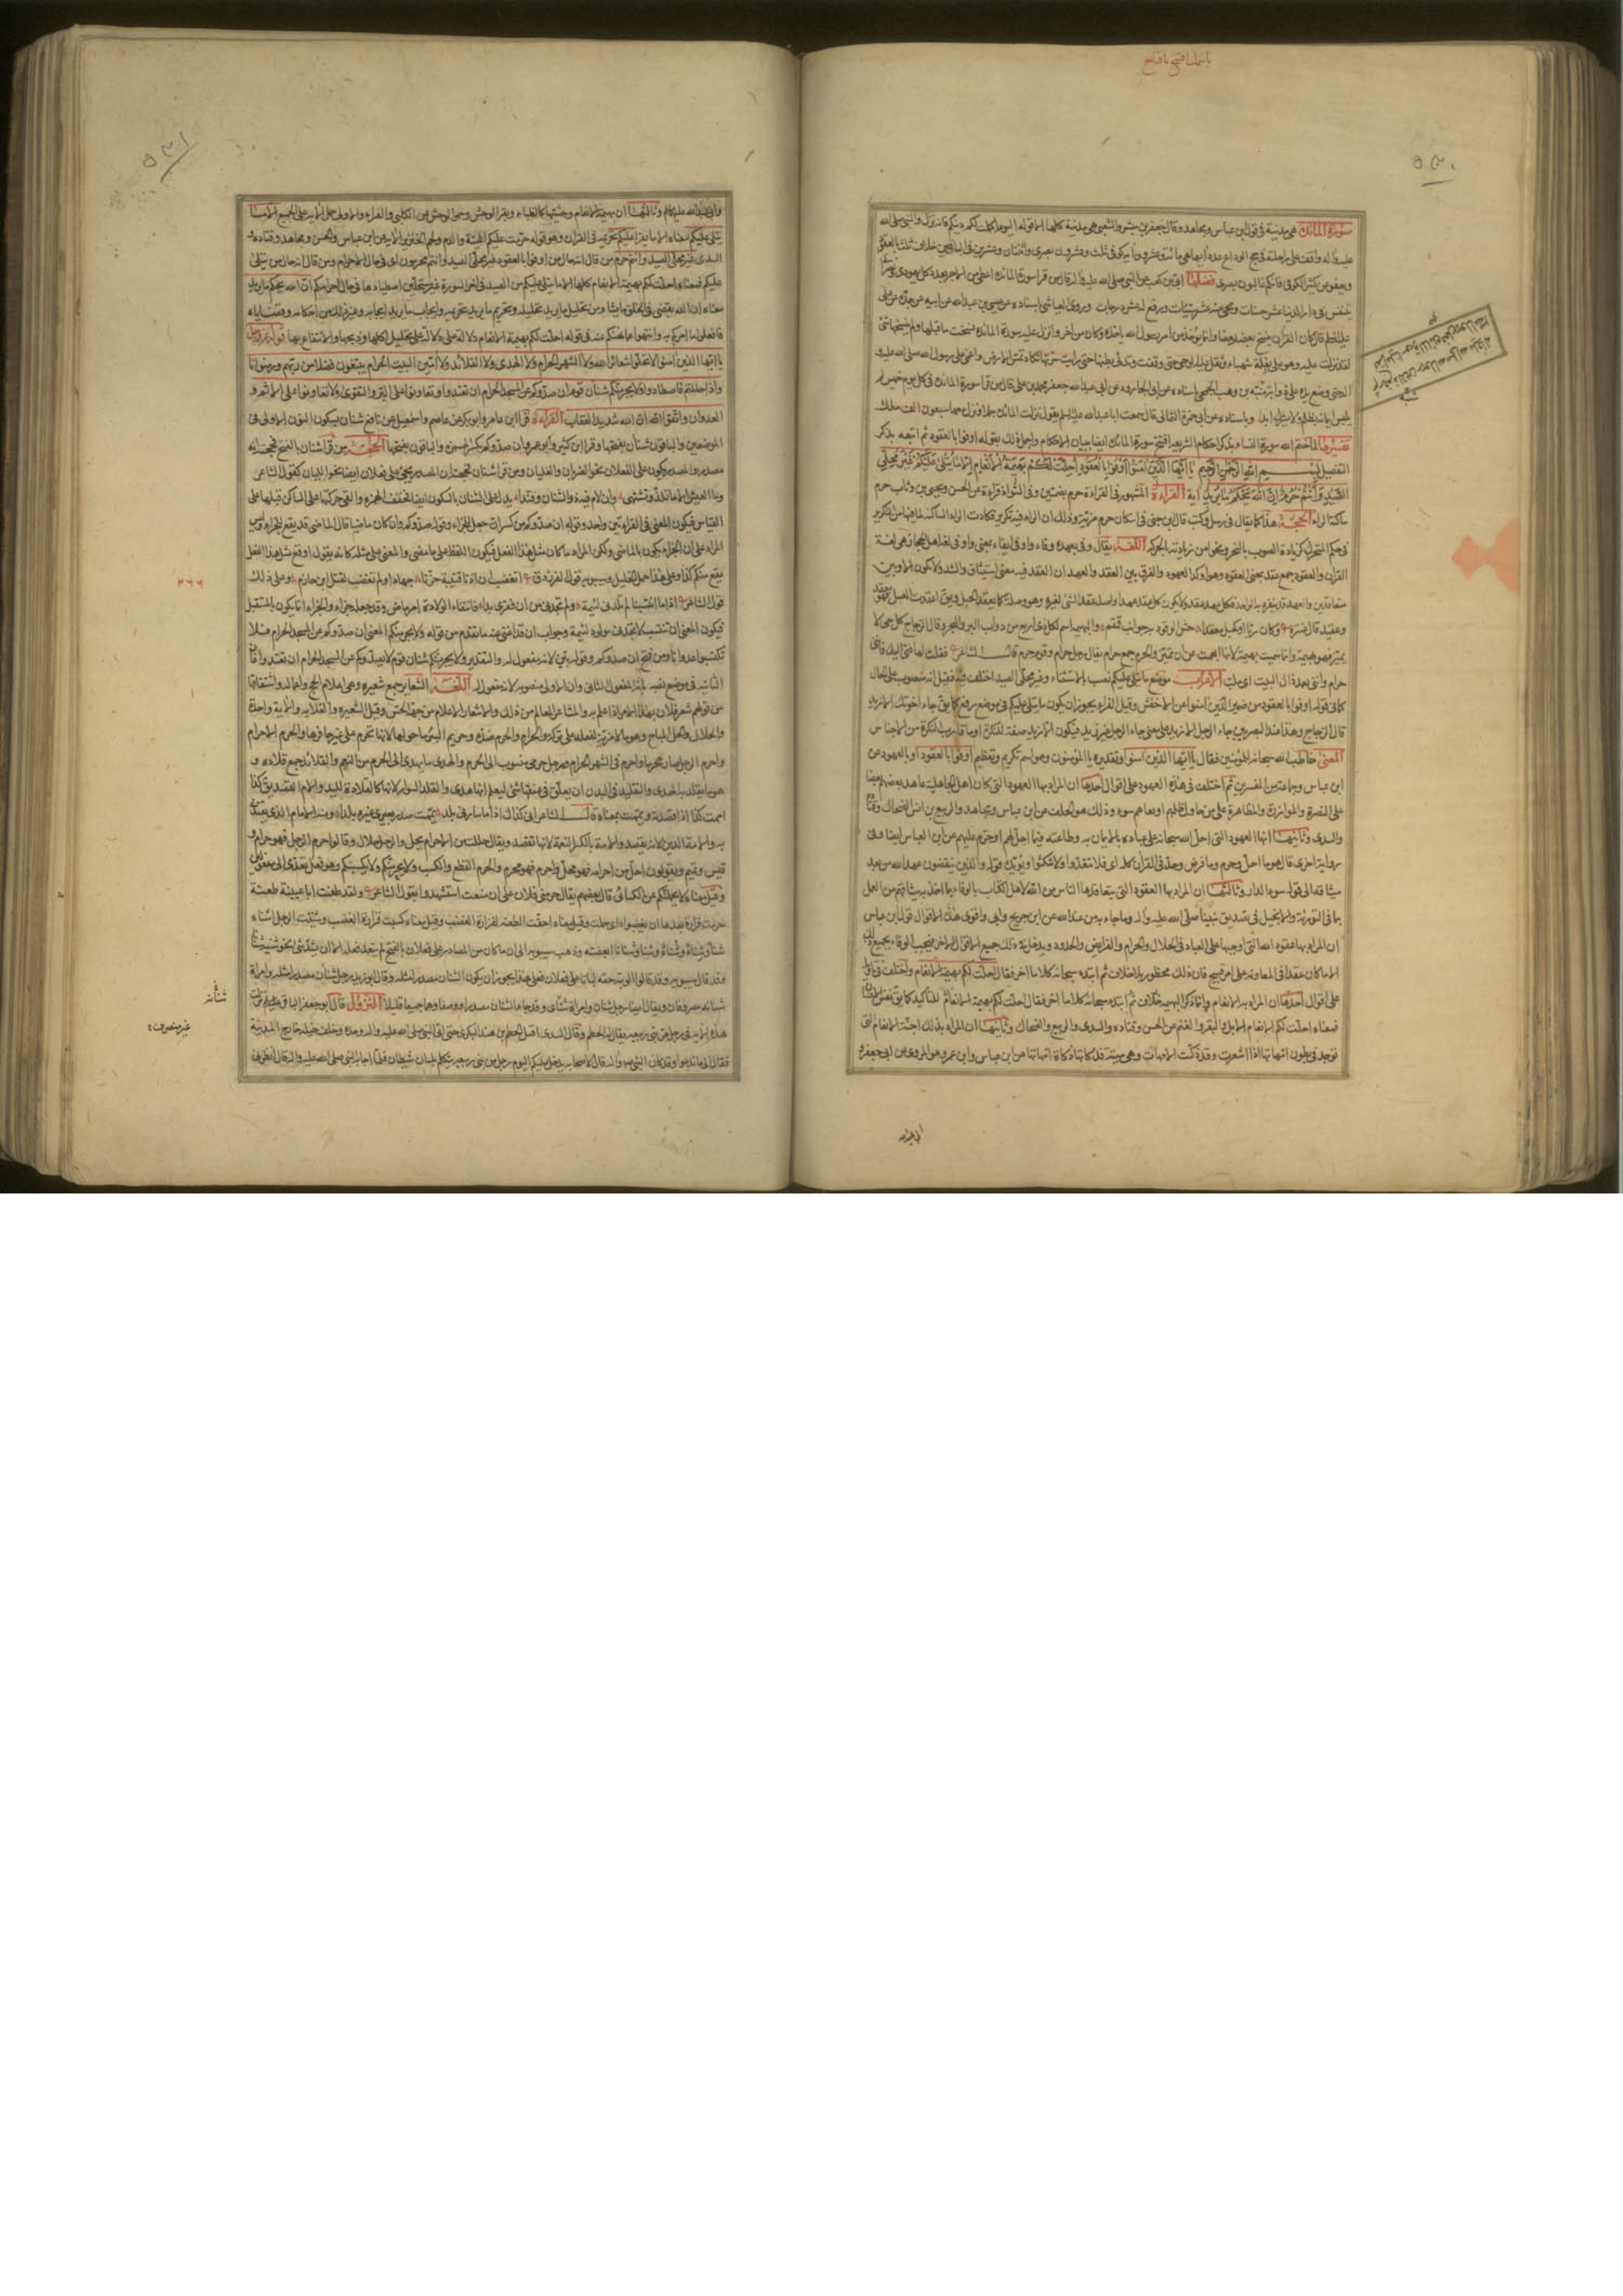 يا سمك افتح يا فتاح
٥٣٠
سورة المائدة هي مدنية في قول ابن عباس ومجاهد وقال جعفر بن مبشر والشعبي هي مدنية كلها الا قوله اليوم اكملت لكم دينكم فانه نزل والنبي صلى الله
عليه واله واقف على راحلته في حجة الوداع عدد آيها هي مائة وعشرون آية كوفي ثلث وعشرون بصري واثنتان وعشرون في الباقين خلافها ثلث بالعقود
ويعفو عن كثير الكوفي فانكم غالبون بصري فضلها ابي بن كعب عن النبي صلى الله عليه واله قال من قرا سورة المائدة اعطي من الاجر بعدد كل يهودي ونصراني
يتنفس في دار الدنيا عشر حسنات ومحي عنه عشر سيئات ورفع له عشر درجات وروى العياشي باسناده عن عيسى بن عبدالله عن ابيه عن جده عن علي
عليه السلم قال كان القران ينسخ بعضه بعضا وانما يؤخذ من امر رسول الله باخره وكان من آخر ما نزل عليه سورة المائدة نسخت ما قبلها ولم ينسخها شئ
لقد نزلت عليه وهو على بغلة شهباء وثقل عليه الوحي حتى وقفت وتدلى بطنها حتى رايت سرتها تكاد تمس الارض واغمي على رسول الله صلى الله عليه و
حتى وضع يده على ذوابة منبه بن وهب الجمحي باسناده عن ابي الجارود عن ابي عبد الله جعفر محمد بن علي قال من قرا سورة المائدة في كل يوم خميس لم
يلبس ايمانه بظلم ولا يشرك ابدا وباسناده عن ابي حمزة الثمالي قال سمعت ابا عبد الله عليه السلم يقول نزلت المائدة جملا ونزل معها سبعون الف ملك
تفسيرها لما ختم الله سورة النساء بذكر احكام الشريعة افتتح سورة المائدة ايضا ببيان الاحكام واجمل ذلك بقوله اوفوا بالعقود ثم اتبعه بذكر
التفصيل بسم الله الرحمن الرحيم يا ايها الذين امنوا اوفوا بالعقود احلت لكم بهيمة الانعام الا ما يتلى عليكم غير محلي
الصيد وانتم حرم ان الله يحكم ما يريد آية القراءة المشهور في القراءة حرم بضمتين وفي الشواذ قراءة عن الحسن ويحيى بن وثاب حرم
ساكنة الراء الحجة هذا كما يقال في رسل وكتب قال ابن جني في اسكان حرم مزية وذلك ان الراء فيه تكرير فكادت الراء الساكنة لما فيها من التكرير
في حكم المتحرك كزيادة الصوت بالنحو ونحو امن زيادته بالحركة اللغة يقال وفى بعهده وفاء واوفى ايفاء بمعنى واوفى لغة اهل الحجاز هي لغة
القران والعقود جمع عقد بمعنى المعقود وهو اوكد العهود والفرق بين العقد والعهد ان العقد فيه معنى استيثاق والشد ولا يكون الا بين
متعاقدين والعهد قد ينفرد به الواحد فكل عهد عقد ولا يكون كل عقد عهدا واصله عقد الشئ لغيره وهو وصله كما يعقد الحبل ويق اعقدت العسل فهو معقد
وعقيد قال عنترة وكان ربا او كحيل معقدا حش الوقود به جوانب قمقم والبهيمة اسم لكل ذي اربع من دواب البر والبحر وقال الزجاج كل حي لا
يميز فهو بهيمة وانما سميت بهيمة لانها ابهمت عن ان تميز والحرم جمع حرام يقال رجل حرام وقوم حرم قال الشاعر فقلت لها فيئي اليك فانني
حرام واني بعد ذاك لبيب اي ملب الاعراب موضع ما يتلى عليكم نصب بالاستثناء وغير محلي الصيد اختلف فيه فقيل انه منصوب على الحال
مما في قوله اوفوا بالعقود من ضمير الذين امنوا عن الاخفش وقيل الفراء يجوز ان يكون ما يتلى عليكم في موضع رفع كما يق جاء اخوتك الا زيد
قال الزجاج وهذا عند البصريين جاء الرجل الا زيد على معنى جاء الرجل غير زيد فيكون الا زيد صفة للنكرة او ما قارب النكرة من الاجناس
المعنى خاطب الله سبحانه المؤمنين فقال يا ايها الذين امنوا وتقديره يا المؤمنون وهو اسم تكريم وتعظيم اوفوا بالعقود او بالعهود عن
ابن عباس وجماعة من المفسرين ثم اختلف في هذه العهود على اقوال احدها ان المراد بها العهود التي كان اهل الجاهلية عاهد بعضهم بعضا
على النصرة والموازرة والمظاهرة على من حاول ظلمهم او بغاهم سوء وذلك هو الحلف عن ابن عباس ومجاهد والربيع بن انس والضحاك وقتادة
والسدي وثانيها انها العهود التي اخذ الله سبحانه على عباده بالايمان به وطاعته فيما احل لهم او حرم عليهم عن ابن العباس ايضا وفي
رواية اخرى قال هو ما احل وحرم وما فرض وحد في القران كله اي فلا تتعدوا ولا تنكثوا ويؤيده قوله والذين ينقضون عهد الله من بعد
ميثاقه الى قوله سوء الدار وثالثها ان المراد بها العقود التي يتعاقدها الناس من الله لاهل الكتاب بالوفاء بما اخذ به ميثاقهم من العمل
بما في التورية والانجيل في تصديق نبينا صلى الله عليه واله وما جاء به من عند الله عن ابن جريج وابي واقوى هذه الاقوال قول ابن عباس
ان المراد بها عقود الله التي اوجبها على العباد في الحلال والحرام والفرائض والحدود ويدخل في ذلك جميع الاقوال الاخر فيجب الوفاء بجميع ذلك
الا ما كان عقدا في المعاونة على امر قبيح فان ذلك محظور بلا خلاف ثم ابتدء سبحانه كلاما اخر فقال احلت لكم بهيمة الانعام واختلف في تاويله
على اقوال احدها ان المراد به الانعام وانما ذكر البهيمة ثم ابتدء سبحانه كلاما اخر فقال احلت لكم بهيمة الانعام للتاكيد كما يق نفس الانسان
فمعناه احلت لكم الانعام الابل والبقر والغنم عن الحسن وقتادة والسدي والربيع والضحاك وثانيها ان المراد بذلك اجنة الانعام التي
توجد في بطون امهاتها اذا اشعرت وقد ذكت الامهات وهي ميتة فذكاتها ذكاة امهاتها عن ابن عباس وابن عمر وهو المروي عن ابي جعفر و
ابي عبدالله
٥٣١
وابي عبدالله عليهما السلم وثالثها ان بهيمة الانعام وحشيها كالظباء وبقر الوحش وحمر الوحش عن الكلبي والفراء والاولى حمل الاية على الجميع الا ما
يتلى عليكم معناه الا ما يقرأ عليكم تحريمه في القران وهو قوله حرمت عليكم الميتة والدم ولحم الخنزير الاية عن ابن عباس والحسن ومجاهد وقتادة و
السدي غير محلي الصيد وانتم حرم من قال انه حال من اوفوا بالعقود غير محلي الصيد وانتم محرمون اي في حال الاحرام ومن قال انه حال من يتلى
عليكم فمعناه احلت لكم بهيمة الانعام كلها الا ما يتلى عليكم من الصيد في اخر السورة غير مستحلين اصطيادها في حال احرامكم ان الله يحكم ما يريد
معناه ان الله يقضي في الخلق ما يشاء من تحليل ما يريد تحليله وتحريم ما يريد تحريمه وايجاب ما يريد ايجابه وغير ذلك من احكامه وقضاياه
فافعلوا ما امركم به وانتهوا عما نهاكم عنه في قوله احلت لكم بهيمة الانعام دلالة على تحليل اكلها وذبحها والانتفاع بها قوله عز وجل
يا ايها الذين امنوا لا تحلوا شعائر الله ولا الشهر الحرام ولا الهدي ولا القلائد ولا آمين البيت الحرام يبتغون فضلا من ربهم ورضوانا
واذا حللتم فاصطادوا ولا يجرمنكم شنان قوم ان صدوكم عن المسجد الحرام ان تعتدوا وتعاونوا على البر والتقوى ولا تعاونوا على الاثم و
العدوان واتقوا الله ان الله شديد العقاب القراءة قرا ابن عامر وابو بكر عن عاصم واسمعيل عن نافع شنان بسكون النون الاولى في
الموضعين والباقون شنأن بفتحها وقرا ابن كثير وابو عمرو ان صدوكم بكسر الهمزة والباقون بفتحها الحجة من قرا شنأن بالفتح فحجته انه
مصدر والمصدر يكون على الفعلان نحو الضربان والغليان ومن قرا شنان فحجته ان المصدر يجئ على فعلان ايضا نحو الليان كقول الشاعر
وما العيش الا ما تلذ وتشتهي وان لام فيه ذو الشنان وفندا
القياس فيكون المعنى في القراءتين واحد وقوله ان صدوكم من كسر ان جعل للجزاء وقوله صدوكم وان كان ماضيا قال الماضي قد يقع للجزاء وليس
المراد على ان الجزاء يكون بالماضي ولكن المراد ما كان مثل هذا الفعل فيكون اللفظ على ما مضى والمعنى على مثله كانه يقول ان وقع مثل هذا الفعل
يقع منكم كذا وعلى هذا حمل الخليل وسيبويه قول الفرزدق اتغضب ان اذنا قتيبة حزتا جهارا ولم تغضب لقتل ابن خازم وعلى ذلك
قول الشاعر اذا ما انتسبنا لم تلدني لئيمة ولم تجدي من ان تقري بدا فانتفاء الولادة امر ماض وقد جعله جزاء والجزاء انما يكون بالمستقبل
فيكون المعنى ان تنتسب لا تجدني مولود لئيمة وجواب ان قد اغنى عنه ما تقدم من قوله ولا يجرمنكم المعنى ان صدوكم عن المسجد الحرام فلا
تكتسبوا عدوانا ومن فتح ان صدوكم وقوله بقي لانه مفعول له والتقدير ولا يجرمنكم شنان قوم لان صدوكم عن المسجد الحرام ان تعتدوا فان
الثانية في موضع نصب بانه المفعول الثاني وان الاولى منصوبة لانه مفعول له اللغة الشعاير جمع شعيرة وهي اعلام الحج واعماله واشتقاقها
من قولهم شعر فلان بهذا الامر اذا علم به والمشاعر المعالم من ذلك والاشعار الاعلام من جهة الحس وقيل الشعيرة والعلامة والآية واحدة
والحلال والحل المباح وهو ما لا مزية لفعله على تركه والحرام والحرم ضده وحريم البئر ما حولها لانها تحرم على غير حافرها والحرم الاحرام
واحرم الرجل صار محرما واحرم دخل في الشهر الحرام ورجل حرمي منسوب الى الحرم والهدي ما يهدى الى الحرم من النعم والقلائد جمع قلادة و
هو ما يقلد به الهدي والتقليد في البدن ان يعلق في عنقها شئ ليعلم انها هدي
اممت كذا اذا قصدته ويممت بمعناه قال الشاعر اني كذاك اذا ما ساءني بلد يممت صدر بعيري غيره بلدا ومنه الامام الذي يقتدى
به والامة الدين لانه يقصد والامة بالكسر النعمة لانها تقصد ويقال حللت من الاحرام يحل والرجل حلال وقالوا احرم الرجل فهو حرام و
قيس وتميم ويقولون احل من احرامه فهو محل واحرم فهو محرم والجرم القطع والكسب ولا يجرمنكم ولا يكسبنكم وهو فعل يتعدى الى مفعولين
وقيل معناه لا يحملنكم عن الكسائي قال بعضهم يقال جرمني فلان على ان صنعت استشهدوا بقول الشاعر ولقد طعنت ابا عيينة طعنة
جرمت فزارة بعدها ان يغضبوا اي حملت وقيل معناه احقت الطعنة لفزارة الغضب وقيل معناه كسبت فزارة الغضب وشنئت الرجل اشناه
شنأ وشنأة وشناء وشنانا ابغضته وذهب سيبويه الى ان ما كان من المصادر على فعلان بالفتح لم يتعد فعله الا ان يشذ شئ نحو شنئته شنانا
وقد قال سيبويه وقد قالوا لويته حقه ليانا على فعلان فعلى هذا يجوز ان يكون الشنان مصدرا مثله وقال ابو زيد رجل شنأن وامراة
شنانة مصروفان ويقال ايضا رجل شنان وامراة شنأى وقد جاء الشنان مصدرا ووصفا وهما جميعا قليل النزول قال ابو جعفر الباقر عليه السلم نزلت
هذه الاية في رجل من بني ربيعة يقال له الحطم وقال السدي اقبل الحطم بن هند البكري حتى اتى النبي صلى الله عليه واله وحده وخلف خيله خارج المدينة
فقال الى ما تدعو وقد كان النبي ص واله قال لاصحابه يدخل عليكم اليوم رجل من بني ربيعة يتكلم بلسان شيطان فلما اجابه النبي صلى الله عليه واله قال انظرني
٣٦٦
شنأنة
غير منصرف